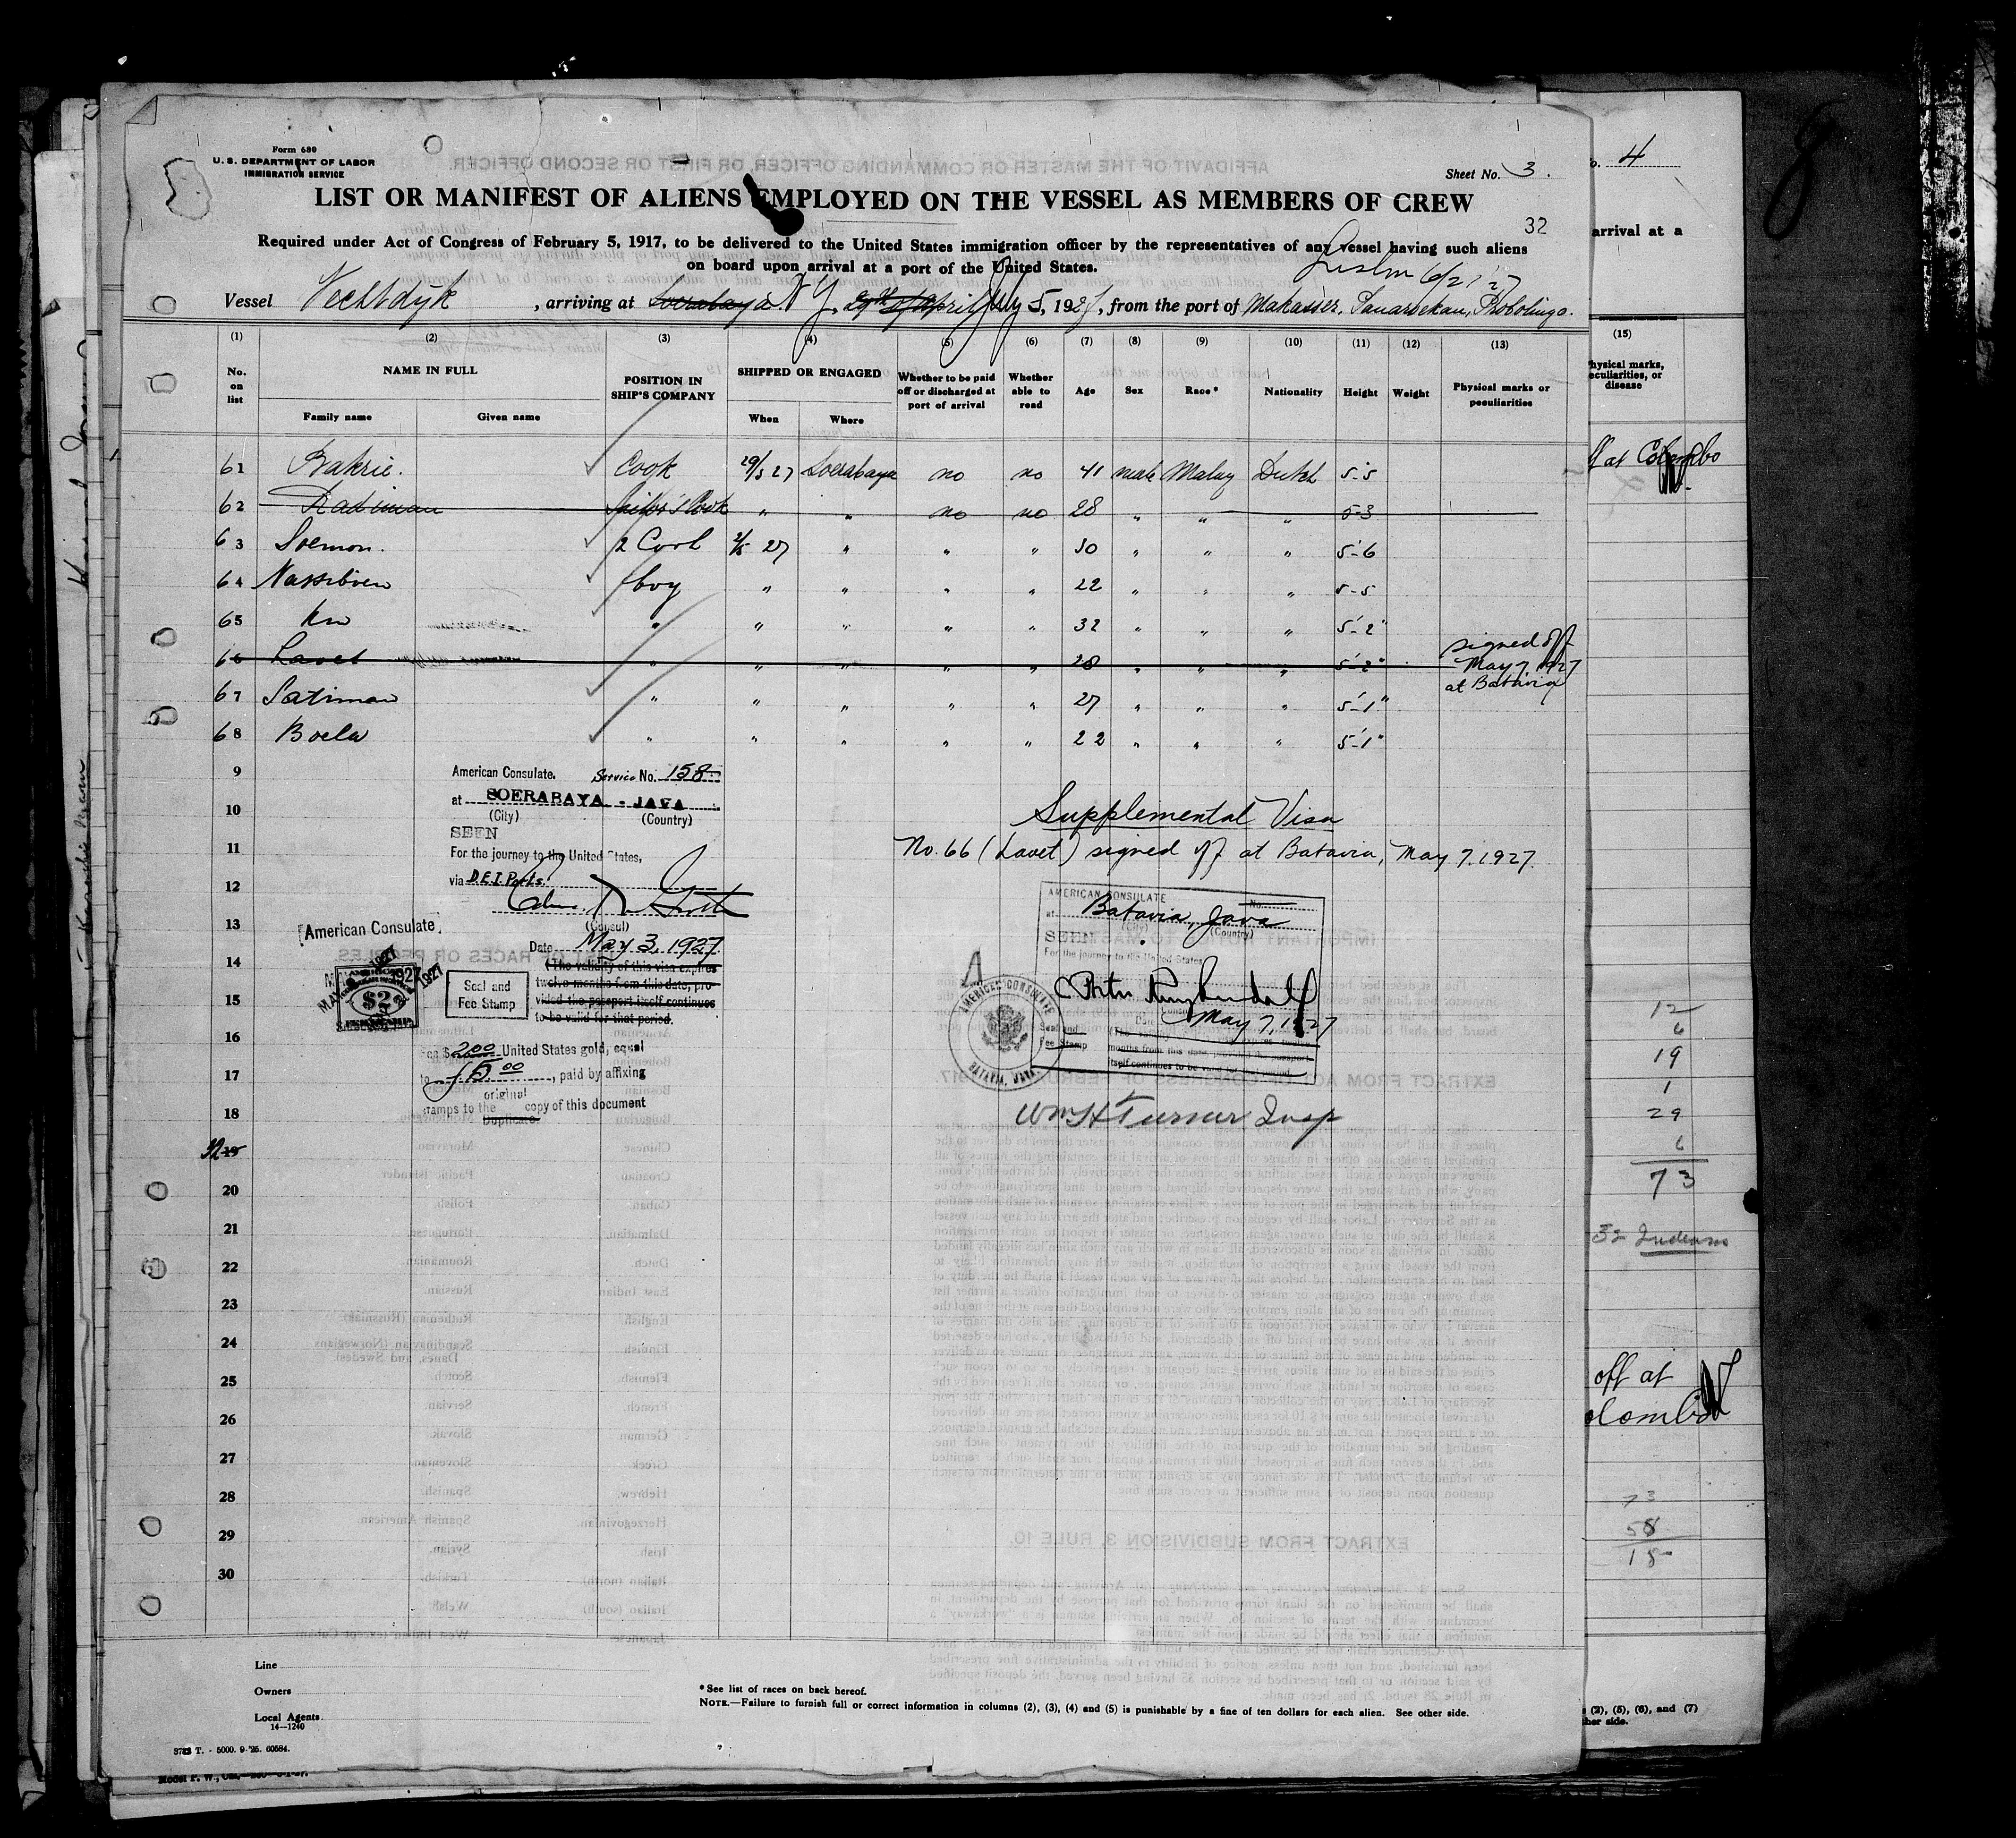 Form 680
U. S. DEPARTMENT OF LABOR
IMMIGRATION SERVICE
Sheet No. 3.
LIST OR MANIFEST OF ALIENS EMPLOYED ON THE VESSEL AS MEMBERS OF CREW
32
Required under Act of Congress of February 5, 1917, to be delivered to the United States immigration officer by the representatives of any vessel having such aliens
on board upon arrival at a port of the United States.
6/21/27
Vessel Vechtdijk, arriving at Soerabaya N Y, July 5, 1927, from the port of Makasser, Panaroekan, Probolingo.
(1) (2) (3) (4) (5) (6) (7) (8) (9) (10) (11) (12) (13)
No. on list
NAME IN FULL
Family name Given name
POSITION IN SHIP'S COMPANY
SHIPPED OR ENGAGED
When Where
Whether to be paid off or discharged at port of arrival
Whether able to read
Age Sex Race* Nationality Height Weight
Physical marks or peculiarities
61 Bakrie. Cook 29/3 27 Soerabaya no no 41 male Malay Dutch 5-5
62 Radiman Sailor's Cook " " no no 28 " " " 5-3
63 Soemon. 2 Cook 2/5 27 " " " 30 " " " 5-6
64 Nassiboen boy " " " " 22 " " " 5-5
65 " " " " " 32 " " " 5-2"
66 Lavet " " " " " 28 " " " 5-2" signed off May 7, 1927 at Batavia
67 Satiman " " " " " 27 " " " 5-1"
68 Boela " " " " " 22 " " " 5-1"
9
10
11
12
13
14
15
16
17
18
19
20
21
22
23
24
25
26
27
28
29
30
American Consulate. Service No. 158
at SOERABAYA - JAVA
(City) (Country)
SEEN
For the journey to the United States,
via D.E.I. Ports.
(Consul)
Date May 3, 1927.
(The validity of this visa expires
twelve months from this date, pro-
vided the passport itself continues
to be valid for that period.
American Consulate
$2
Seal and
Fee Stamp
Fee $2.00 United States gold, equal
to f 5.00, paid by affixing
stamps to the original copy of this document
Duplicate
Supplemental Visa
No. 66 (Lavet) signed off at Batavia, May 7. 1927.
AMERICAN CONSULATE
No.
at Batavia, Java
(City) (Country)
SEEN
For the journey to the United States
May 7, 1927
Seal and
Fee Stamp
AMERICAN CONSULATE
BATAVIA, JAVA
Wm H Turner Insp
Line
Owners
Local Agents
14—1240
* See list of races on back hereof.
NOTE.—Failure to furnish full or correct information in columns (2), (3), (4) and (5) is punishable by a fine of ten dollars for each alien. See other side.
3783 T. - 5000. 9-'25. 60584.
4
arrival at a
(15)
physical marks,
peculiarities, or
disease
off at Colombo
12
6
19
1
29
6
73
32 Indians
off at
Colombo
73
58
15
(2), (5), (6), and (7)
other side.